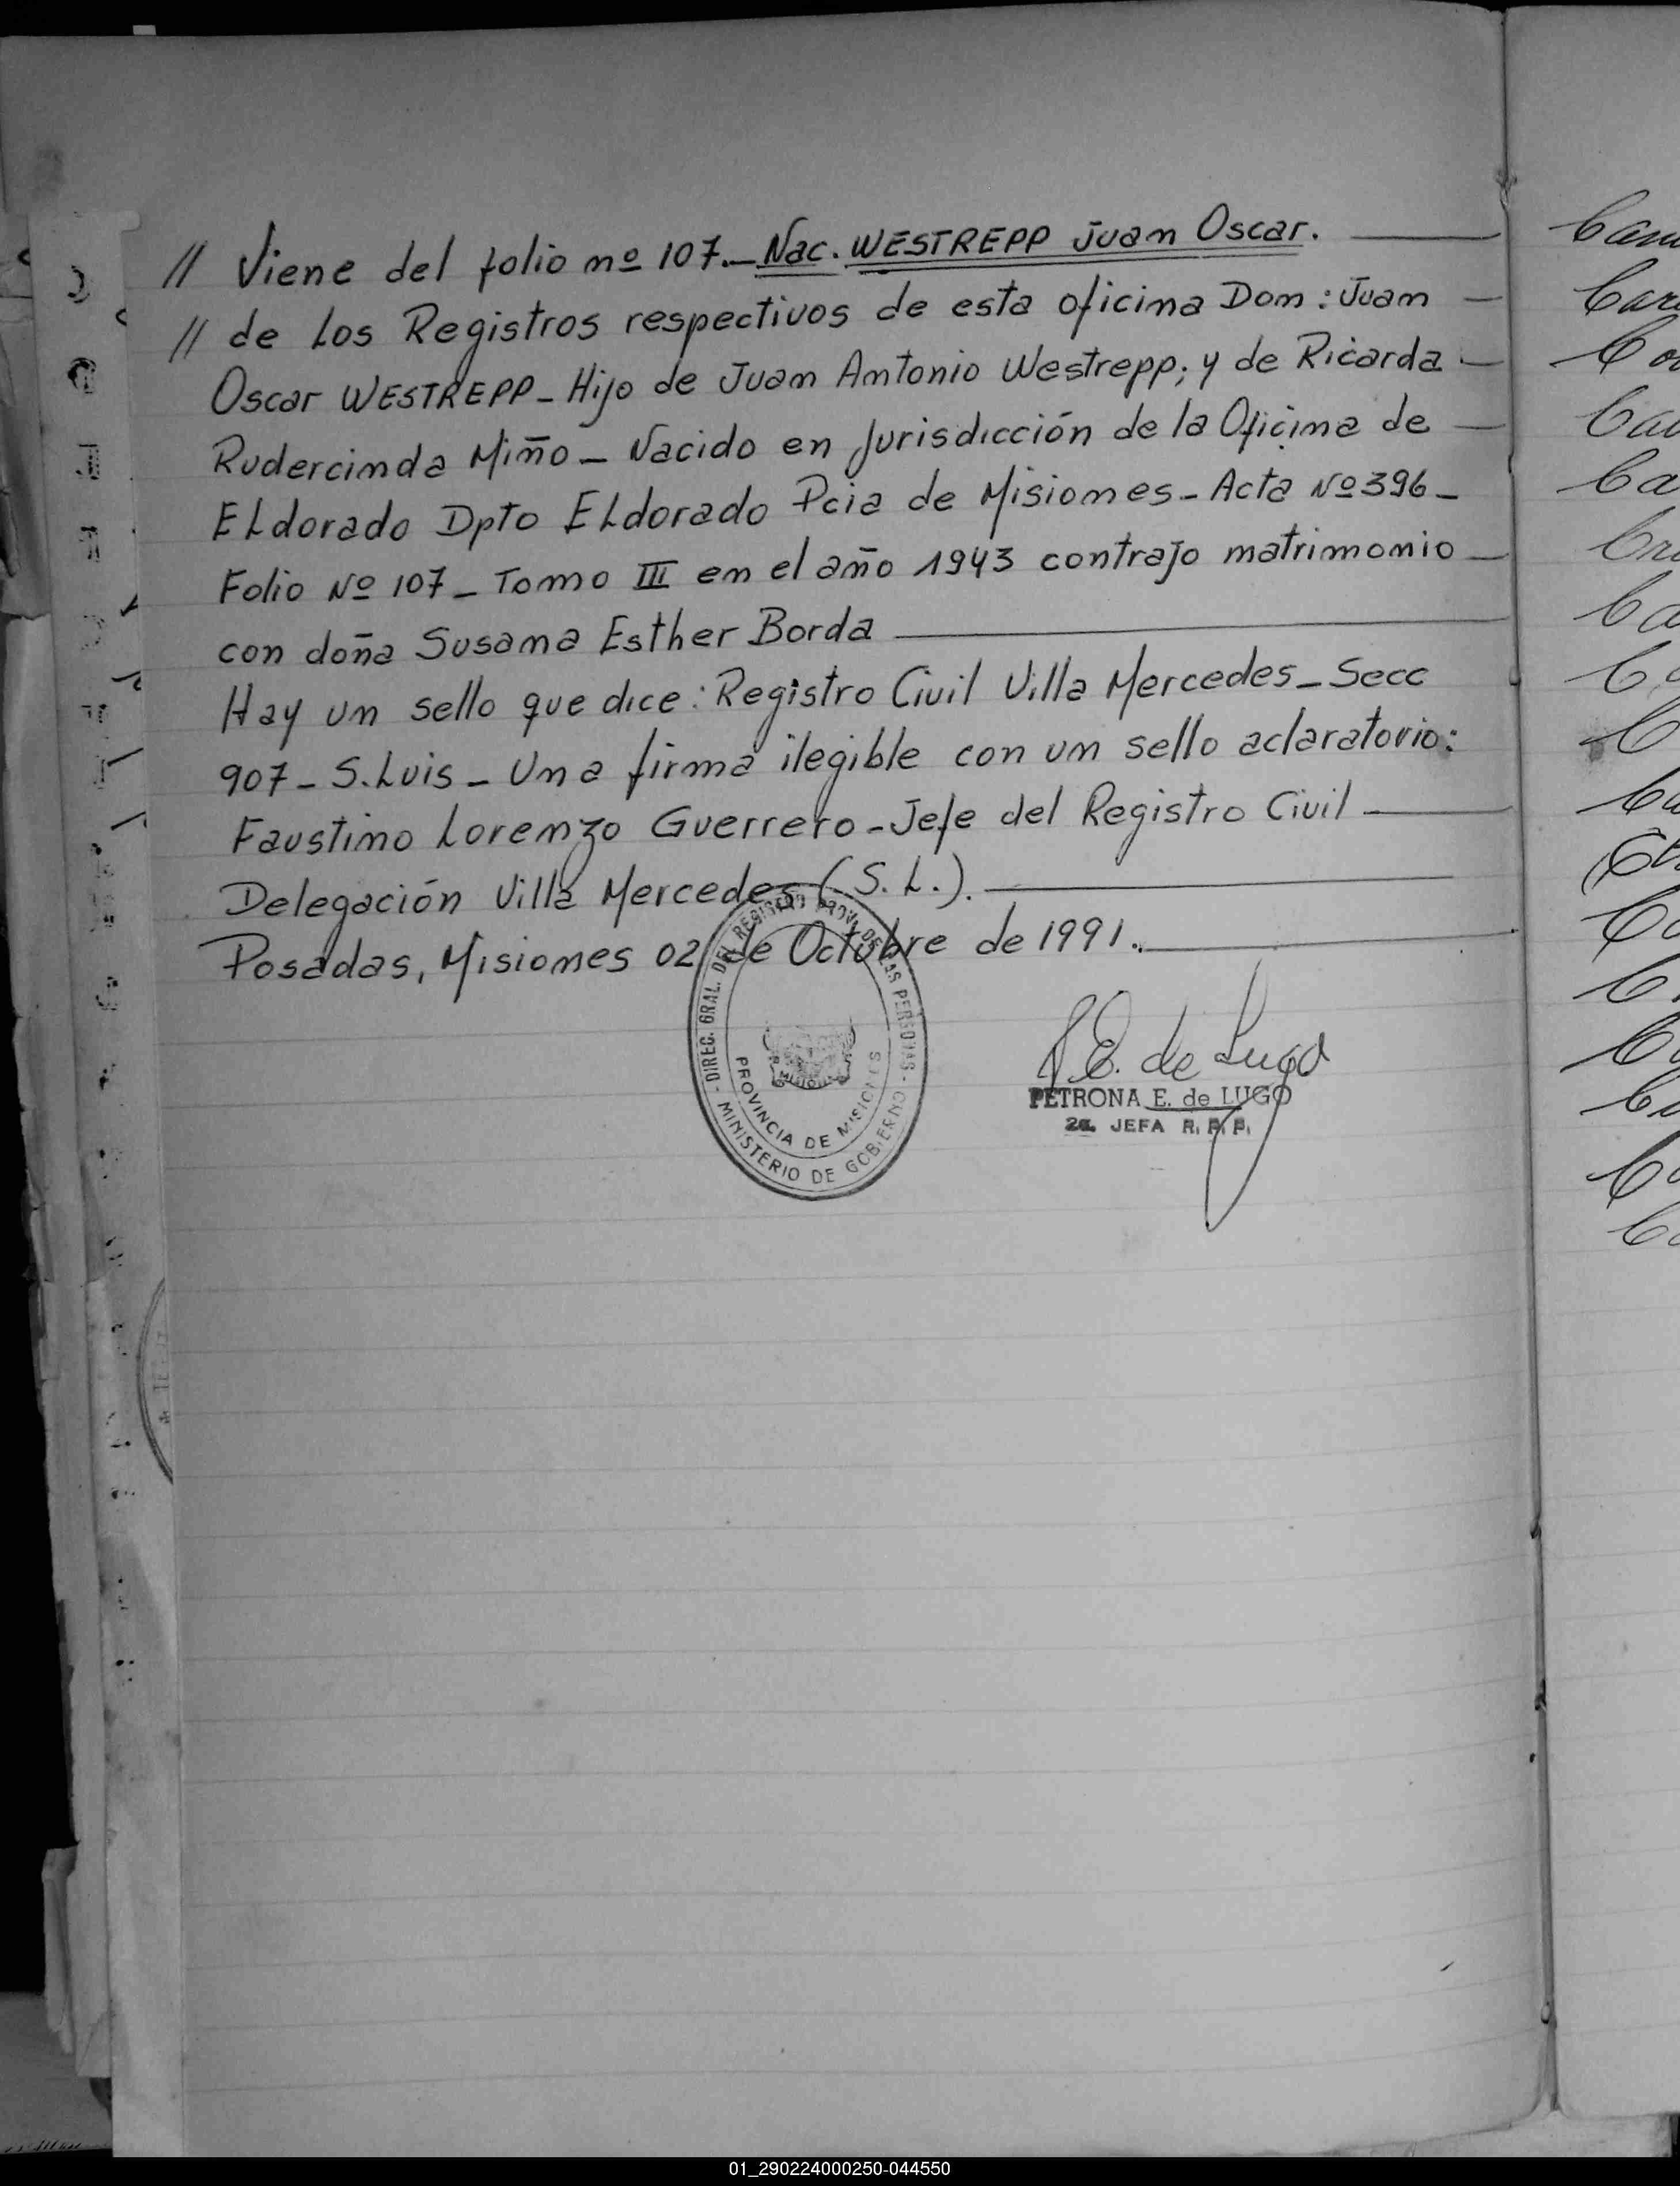 // Viene del folio nº 107.- Nac. WESTREPP Juan Oscar.
// de los Registros respectivos de esta oficina Don: Juan
Oscar WESTREPP - Hijo de Juan Antonio Westrepp; y de Ricarda
Rudercinda Miño - Nacido en Jurisdicción de la Oficina de
Eldorado Dpto Eldorado Pcia de Misiones - Acta Nº 396 -
Folio Nº 107 - Tomo III en el año 1943 contrajo matrimonio
con doña Susana Esther Borda
Hay un sello que dice: Registro Civil Villa Mercedes - Secc
907 - S. Luis - Una firma ilegible con un sello aclaratorio:
Faustino Lorenzo Guerrero - Jefe del Registro Civil
Delegación Villa Mercedes (S. L.).
Posadas, Misiones 02 de Octubre de 1991.
- DIREC. GRAL. DEL REGISTRO PROV. DE LAS PERSONAS -
MINISTERIO DE GOBIERNO
PROVINCIA DE MISIONES
MISIONES
P. E. de Lugo
PETRONA E. de LUGO
2a. JEFA R. P. P.
01_290224000250-044550